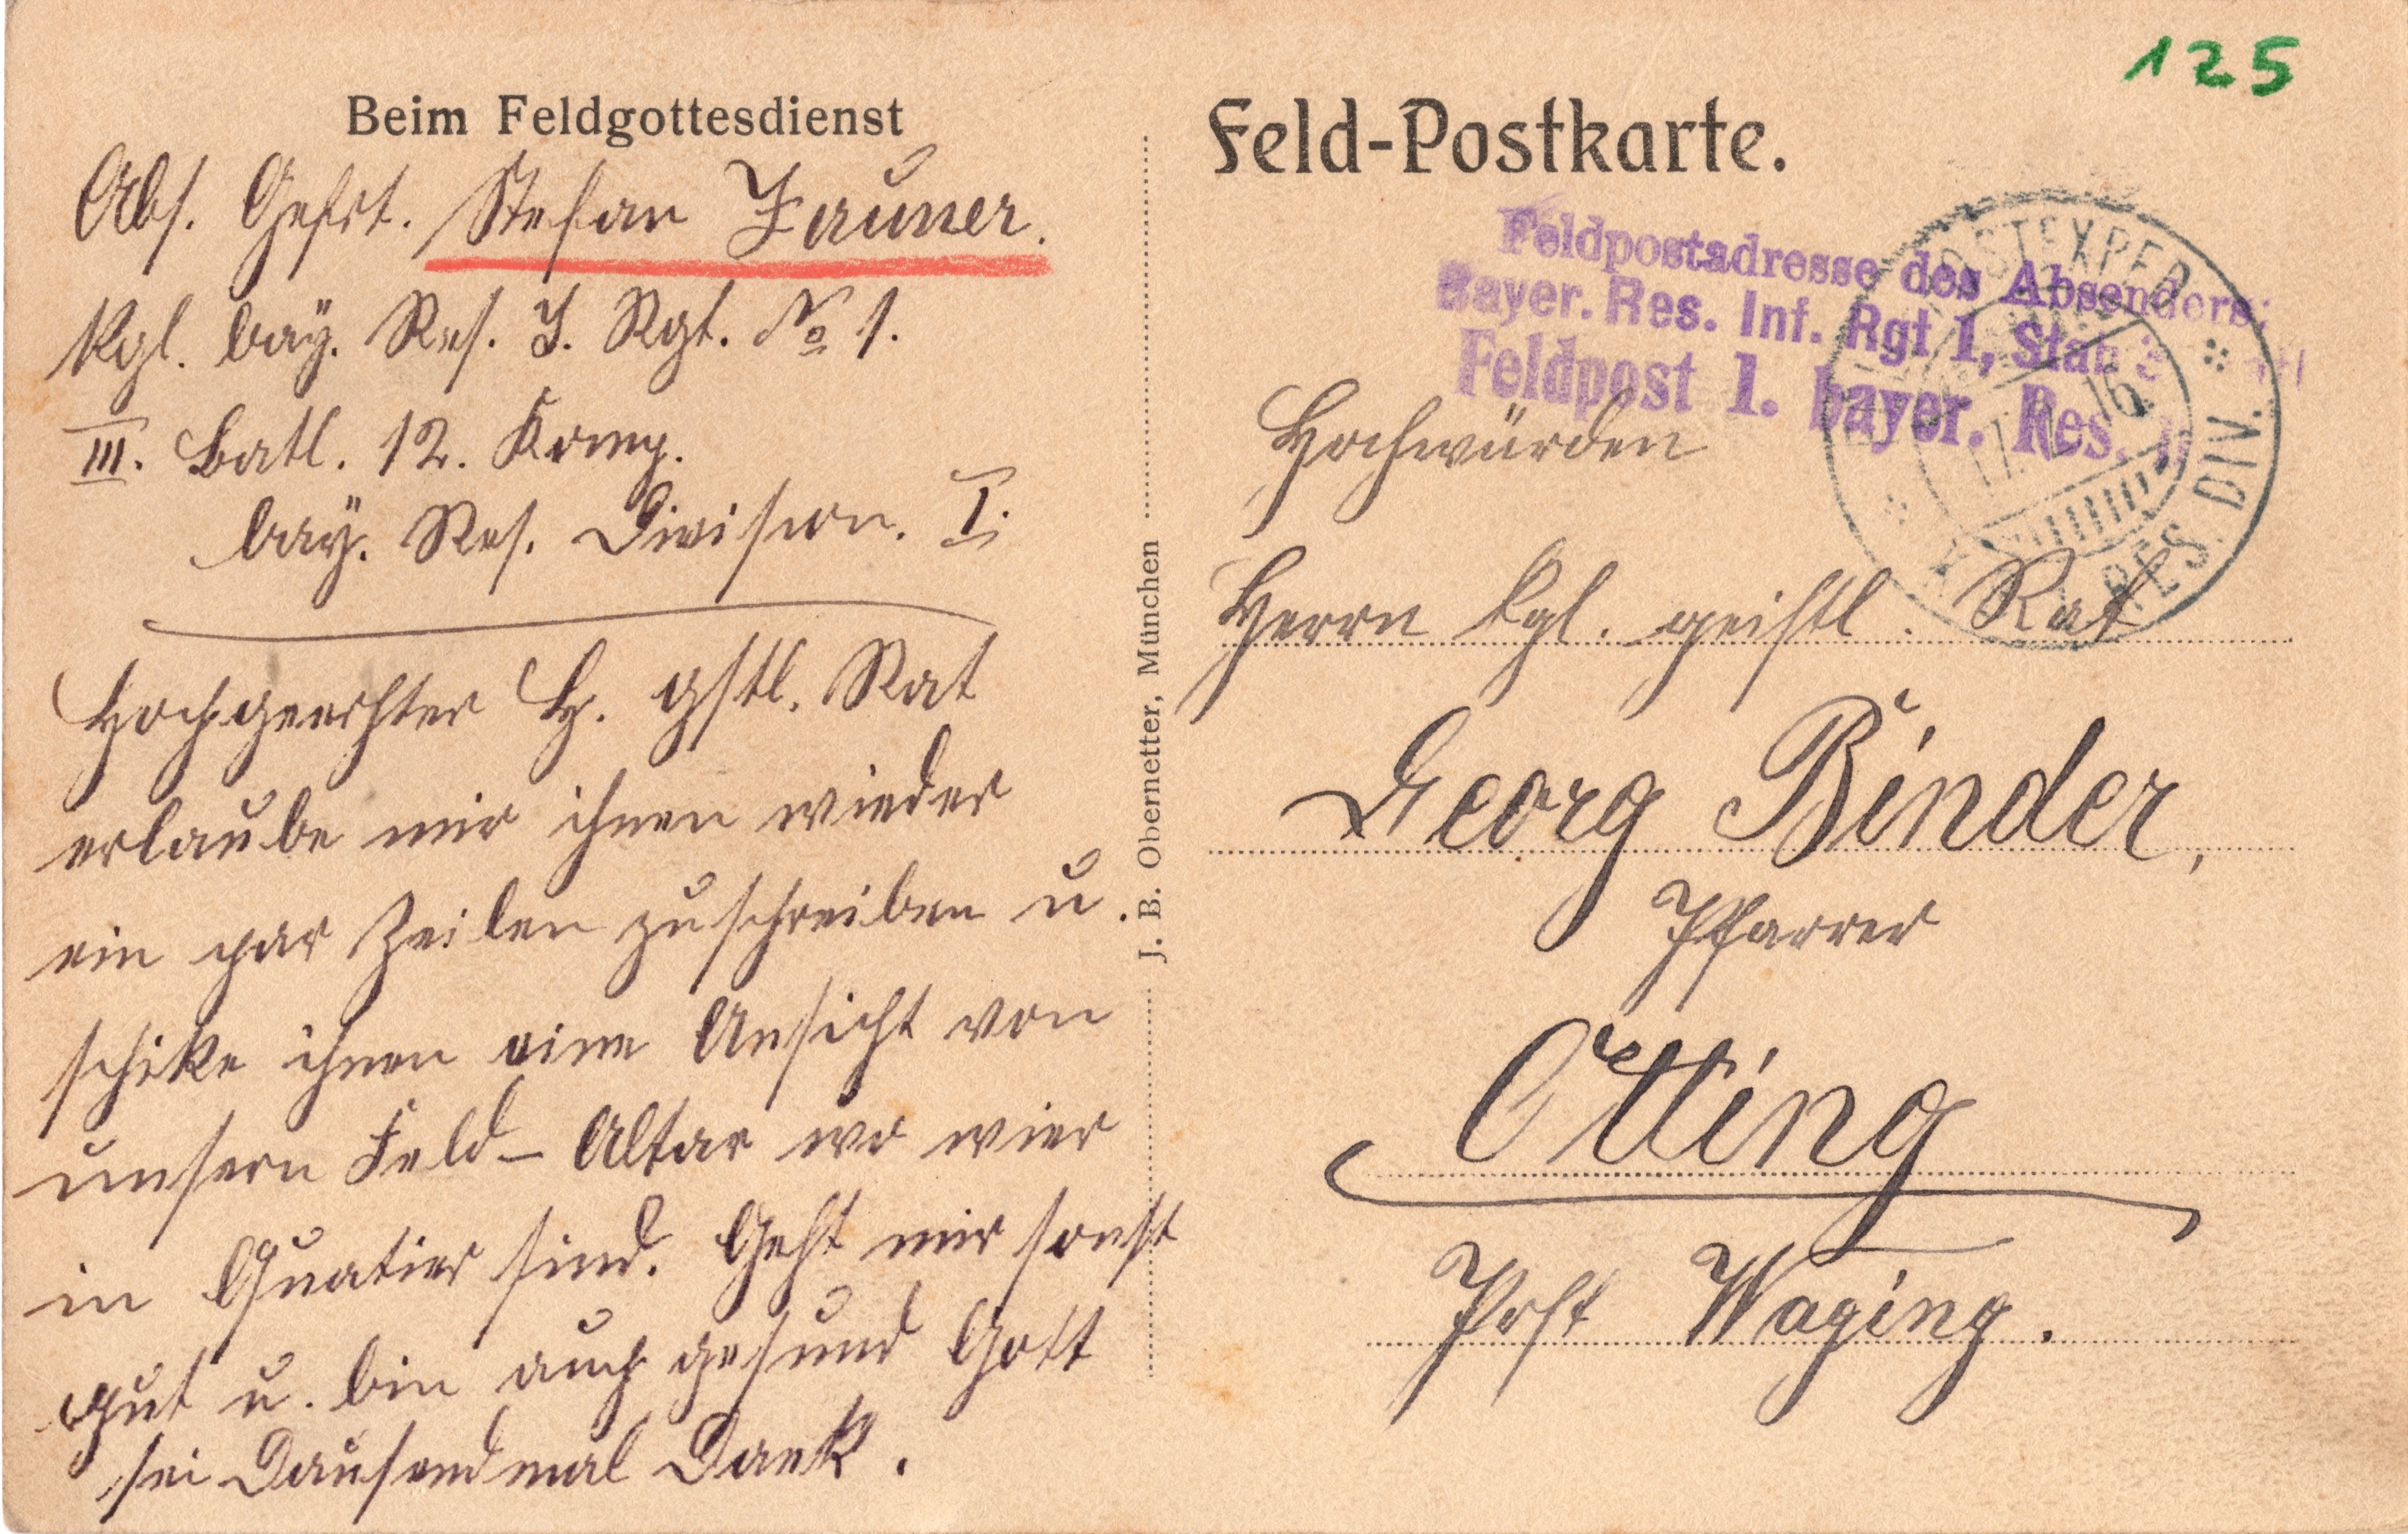 125
Beim Feldgottesdienst
Abs. Gefrt. Stefan Jauner.
Kgl. bay. Res. I. Rgt. No 1.
III. Batl. 12. Komp.
bay. Res. Division. I.
Hochgeerhter H. gstl. Rat
erlaube mir ihnen wieder
ein par Zeilen zuschreiben u.
schike ihnen eine Ansicht von
unsern Feld-Altar wo wier
in Quatier sind. Geht mir sonst
gut u. bin auch gesund Gott
sei Dausendmal Dank.
J. B. Obernetter, München
Feld-Postkarte.
Feldpostadresse des Absenders:
Bayer. Res. Inf. Rgt 1, Stab
Feldpost 1. bayer. Res.
POSTEXPED.
RES. DIV.
Hochwürden
Herrn kgl. geistl. Rat
Georg Binder,
Pfarrer
Otting
Post Waging.